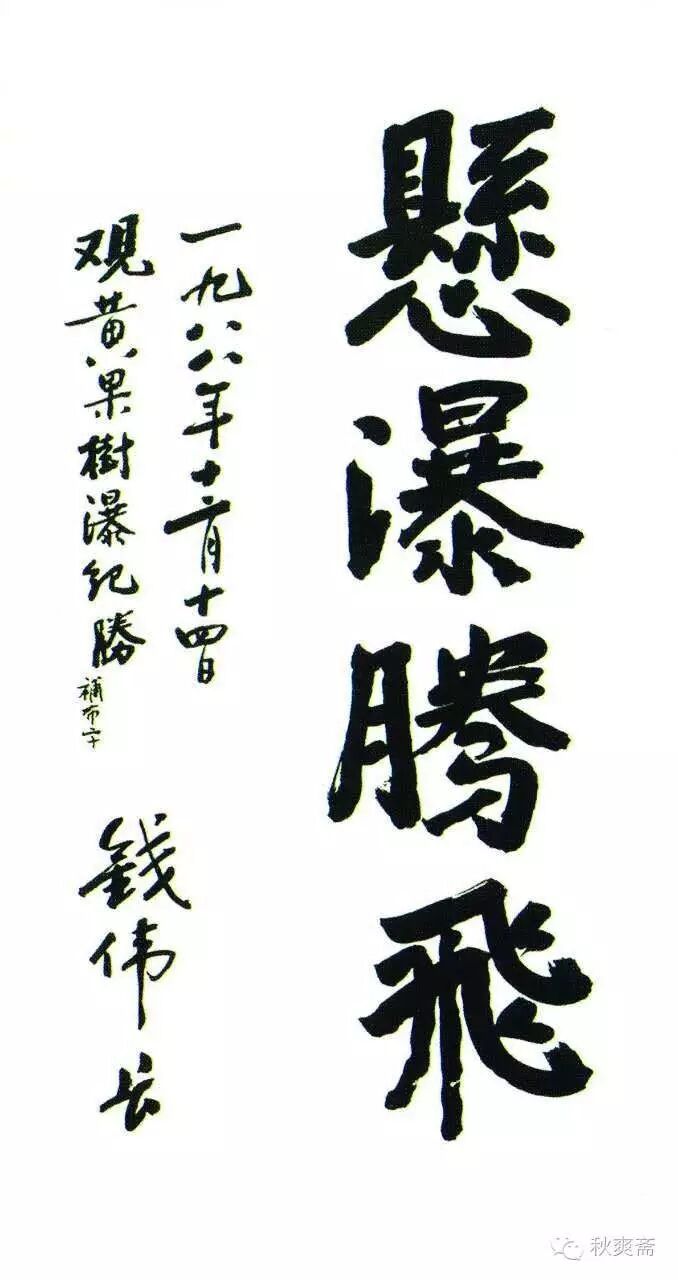 懸瀑腾飛
一九八八年十二月十四日
观黄果樹瀑纪勝
補布字
錢伟长
秋爽斋